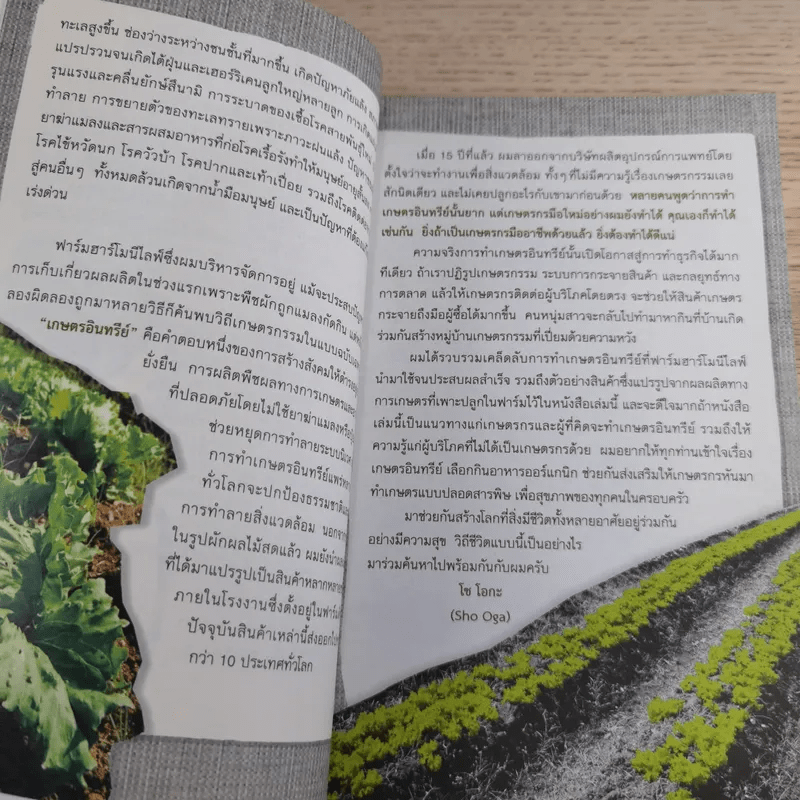 ทะเลสูงขึ้น ช่องว่างระหว่างชนชั้นที่มากขึ้น เกิดปัญหาภัยแล้ง
แปรปรวนจนเกิดไต้ฝุ่นและเฮอร์ริเคนลูกใหญ่หลายลูก การเกิด
รุนแรงและคลื่นยักษ์สึนามิ การระบาดของเชื้อโรคสายพันธุ์ใหม่
ทำลาย การขยายตัวของทะเลทรายเพราะภาวะฝนแล้ง ปัญหา
ยาฆ่าแมลงและสารผสมอาหารที่ก่อโรคเรื้อรังทำให้มนุษย์อายุสั้น
โรคไข้หวัดนก โรควัวบ้า โรคปากและเท้าเปื่อย รวมถึงโรคติดต่อ
สู่คนอื่นๆ ทั้งหมดล้วนเกิดจากน้ำมือมนุษย์ และเป็นปัญหาที่ต้อง
เร่งด่วน
ฟาร์มฮาร์โมนีไลฟ์ซึ่งผมบริหารจัดการอยู่ แม้จะประสบปัญหา
การเก็บเกี่ยวผลผลิตในช่วงแรกเพราะพืชผักถูกแมลงกัดกิน
ลองผิดลองถูกมาหลายวิธีก็ค้นพบวิถีเกษตรกรรมในแบบฉบับ
“เกษตรอินทรีย์” คือคำตอบหนึ่งของการสร้างสังคมให้ดำรง
ยั่งยืน การผลิตพืชผลทางการเกษตรและ
ที่ปลอดภัยโดยไม่ใช้ยาฆ่าแมลงหรือ
ช่วยหยุดการทำลายระบบนิเวศ
การทำเกษตรอินทรีย์แพร่
ทั่วโลกจะปกป้องธรรมชาติและ
การทำลายสิ่งแวดล้อม นอกจาก
ในรูปผักผลไม้สดแล้ว ผมยังนำ
ที่ได้มาแปรรูปเป็นสินค้าหลากหลาย
ภายในโรงงานซึ่งตั้งอยู่ในฟาร์ม
ปัจจุบันสินค้าเหล่านี้ส่งออกไป
กว่า 10 ประเทศทั่วโลก
เมื่อ 15 ปีที่แล้ว ผมลาออกจากบริษัทผลิตอุปกรณ์การแพทย์โดย
ตั้งใจว่าจะทำงานเพื่อสิ่งแวดล้อม ทั้งๆ ที่ไม่มีความรู้เรื่องเกษตรกรรมเลย
สักนิดเดียว และไม่เคยปลูกอะไรกับเขามาก่อนด้วย หลายคนพูดว่าการทำ
เกษตรอินทรีย์นั้นยาก แต่เกษตรกรมือใหม่อย่างผมยังทำได้ คุณเองก็ทำได้
เช่นกัน ยิ่งถ้าเป็นเกษตรกรมืออาชีพด้วยแล้ว ยิ่งต้องทำได้ดีแน่
ความจริงการทำเกษตรอินทรีย์นั้นเปิดโอกาสสู่การทำธุรกิจได้มาก
ทีเดียว ถ้าเราปฏิรูปเกษตรกรรม ระบบการกระจายสินค้า และกลยุทธ์ทาง
การตลาด แล้วให้เกษตรกรติดต่อผู้บริโภคโดยตรง จะช่วยให้สินค้าเกษตร
กระจายถึงมือผู้ซื้อได้มากขึ้น คนหนุ่มสาวจะกลับไปทำมาหากินที่บ้านเกิด
ร่วมกันสร้างหมู่บ้านเกษตรกรรมที่เปี่ยมด้วยความหวัง
ผมได้รวบรวมเคล็ดลับการทำเกษตรอินทรีย์ที่ฟาร์มฮาร์โมนีไลฟ์
นำมาใช้จนประสบผลสำเร็จ รวมถึงตัวอย่างสินค้าซึ่งแปรรูปจากผลผลิตทาง
การเกษตรที่เพาะปลูกในฟาร์มไว้ในหนังสือเล่มนี้ และจะดีใจมากถ้าหนังสือ
เล่มนี้เป็นแนวทางแก่เกษตรกรและผู้ที่คิดจะทำเกษตรอินทรีย์ รวมถึงให้
ความรู้แก่ผู้บริโภคที่ไม่ได้เป็นเกษตรกรด้วย ผมอยากให้ทุกท่านเข้าใจเรื่อง
เกษตรอินทรีย์ เลือกกินอาหารออร์แกนิก ช่วยกันส่งเสริมให้เกษตรกรหันมา
ทำเกษตรแบบปลอดสารพิษ เพื่อสุขภาพของทุกคนในครอบครัว
มาช่วยกันสร้างโลกที่สิ่งมีชีวิตทั้งหลายอาศัยอยู่ร่วมกัน
อย่างมีความสุข วิถีชีวิตแบบนี้เป็นอย่างไร
มาร่วมค้นหาไปพร้อมกันกับผมครับ
โช โอกะ
(Sho Oga)